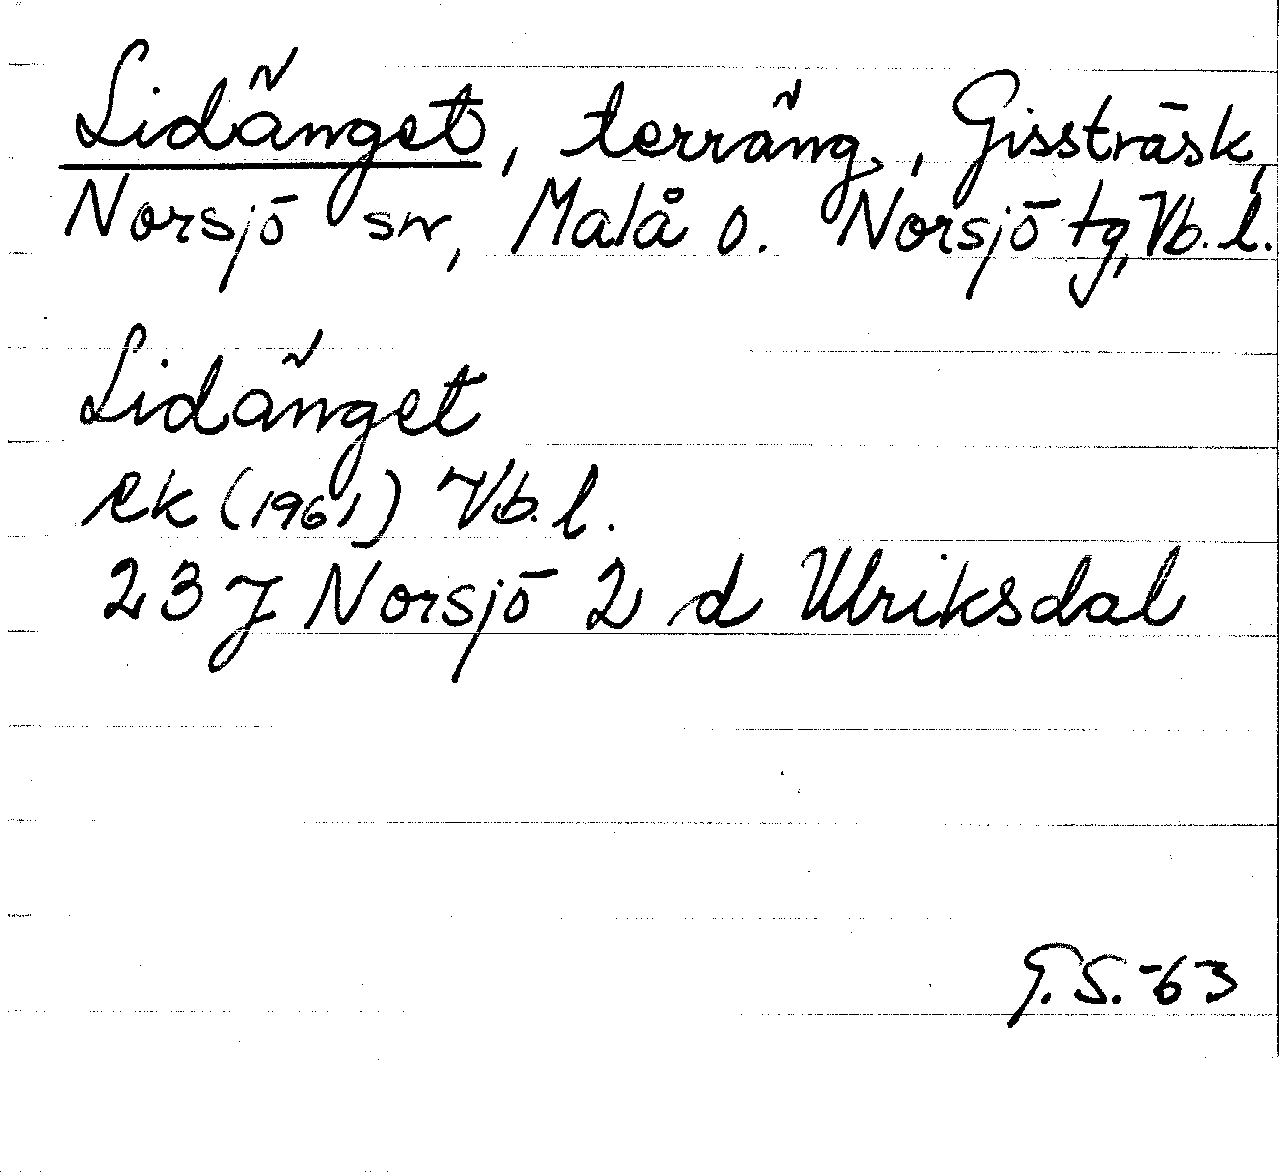 Lidänget, terräng, Gissträsk,
Norsjö sn, Malå o. Norsjö tg, Vb. l.
Lidänget
ek (1961) Vb. l.
23 J Norsjö 2 d Ulriksdal
G.S.-63